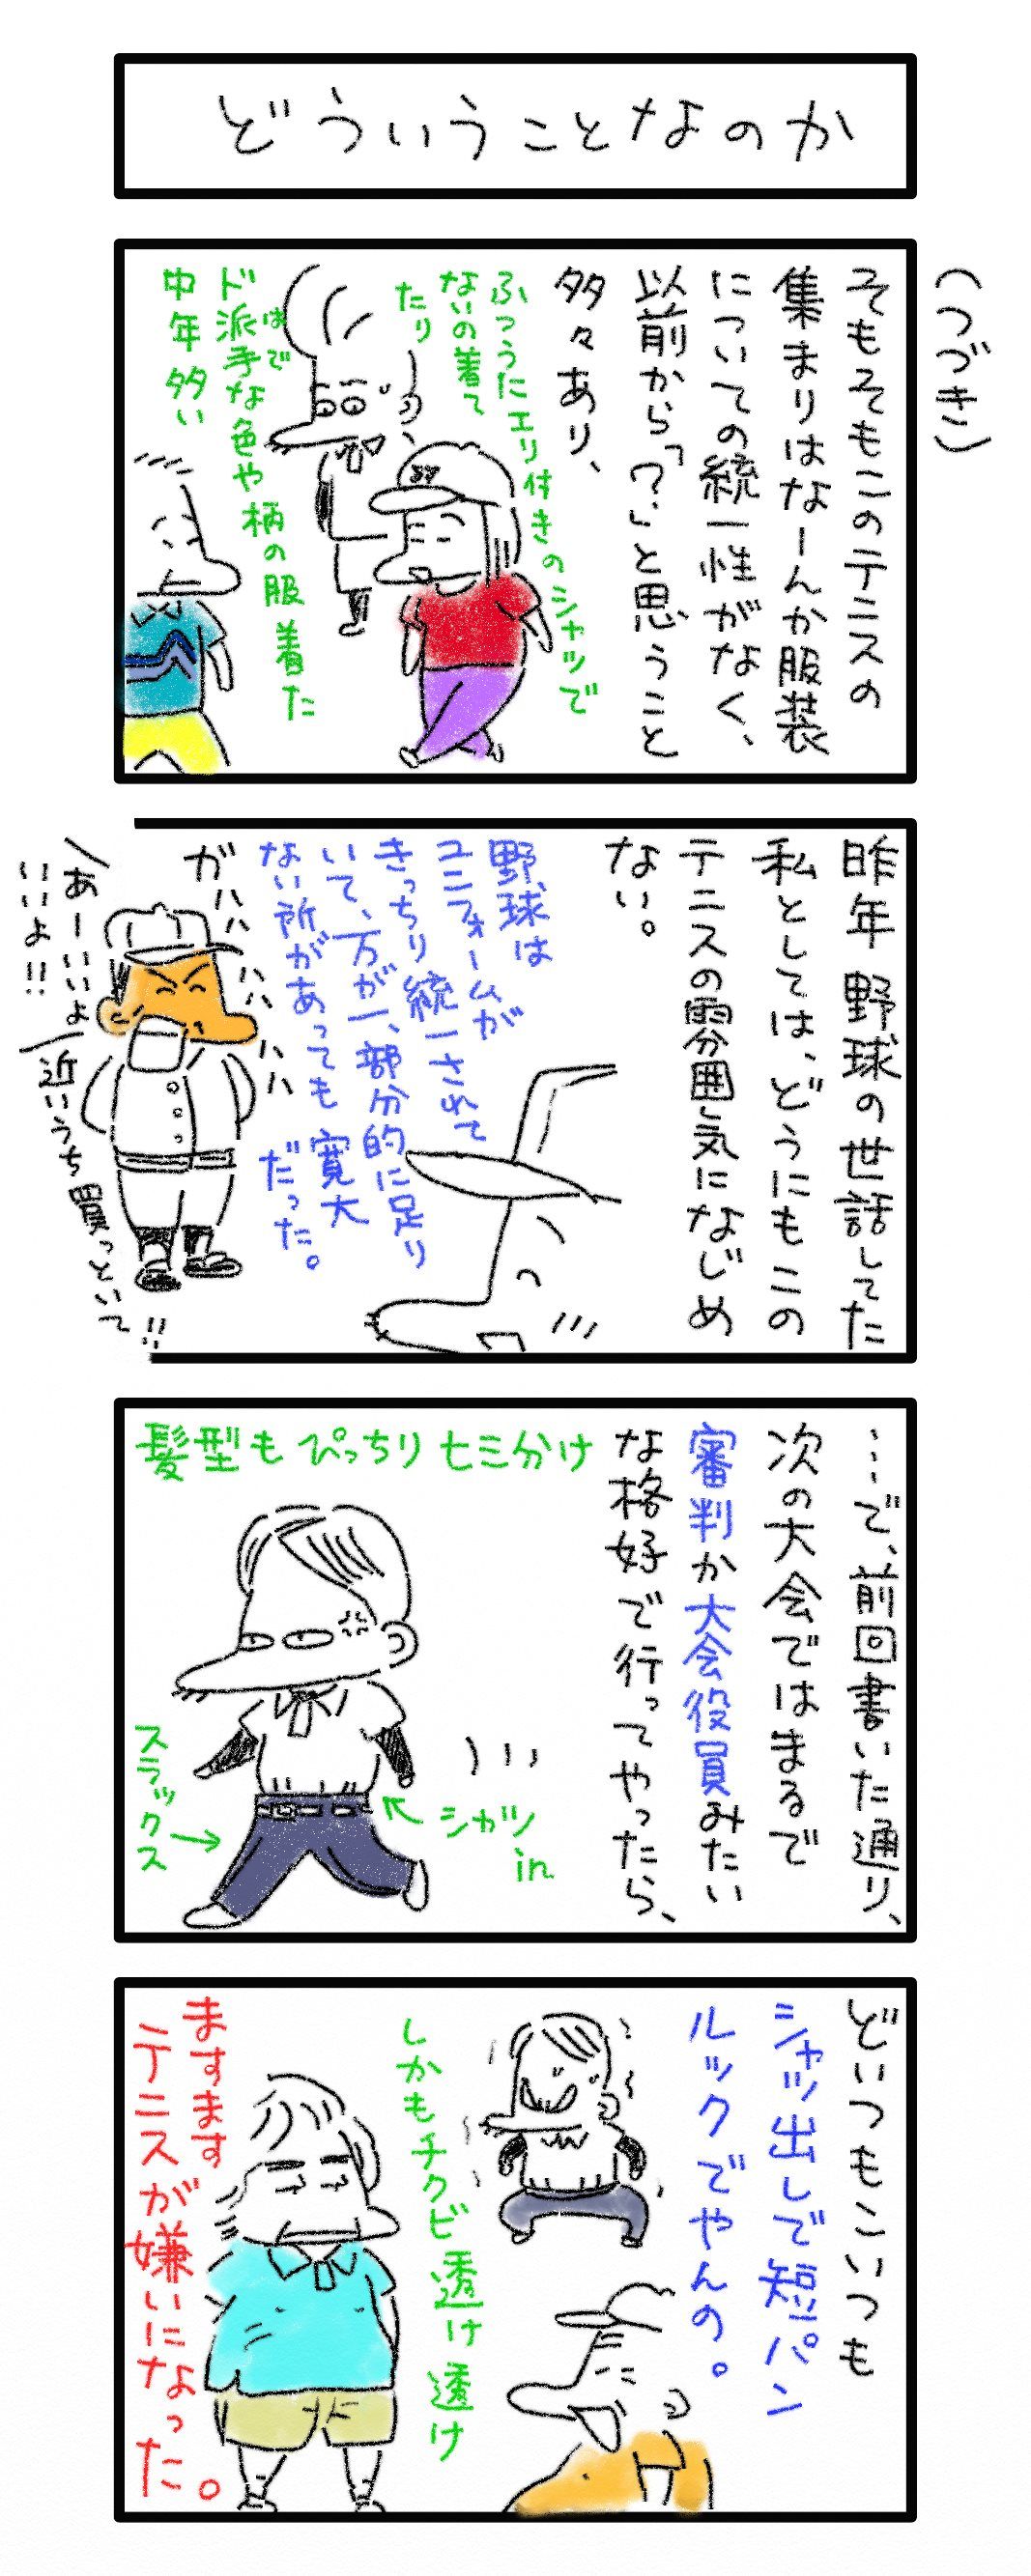 どういうことなのか
(つづき)
そもそもこのテニスの
集まりはなーんか服装
についての統一性がなく、
以前から「?」と思うこと
多々あり、
ふつうたエリ付きのシャツで
ないの着て
たり
ド派手な色や柄の服着た
はで
中年多い
昨年 野球の世話してた
私としては、どうにもこの
テニスの雰囲気になじめ
ない。
野球は
ユニフォームが
きっちり統一されて
いて、万が一、部分的に足り
ない所があっても寛大
だった。
ガハハハハハハハ
あーいいよ
いいよ!!
近いうち買っといて!!
…で、前回書いた通り、
次の大会ではまるで
審判か大会役員みたい
な格好で行ってやったら、
髪型もぴっちり七三分け
シャツ
in
スラックス
どいつもこいつも
シャツ出しで短パン
ルックでやんの。
しかもチクビ透け透け
ますます
テニスが嫌いになった。